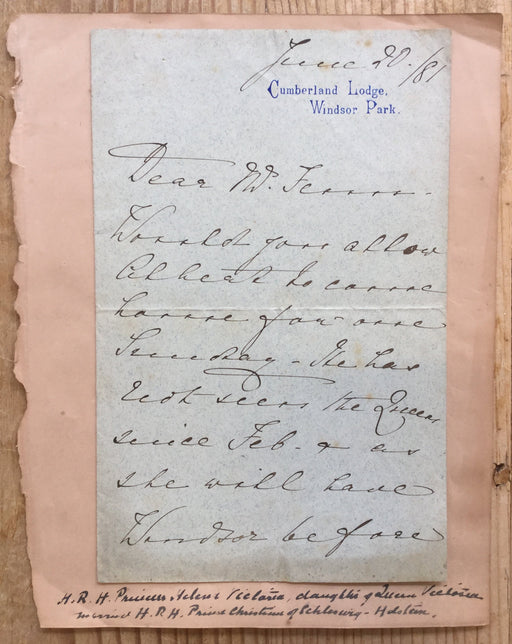 June 20./81
Cumberland Lodge,
Windsor Park.
Dear Mr.
Would you allow
Albert to come
home for one
Sunday - He has
not seen the Queen
since Feb. & as
she will have
Windsor before
H. R. H. Princess Helena Victoria, daughter of Queen Victoria
married H. R. H. Prince Christian of Schleswig - Holstein.